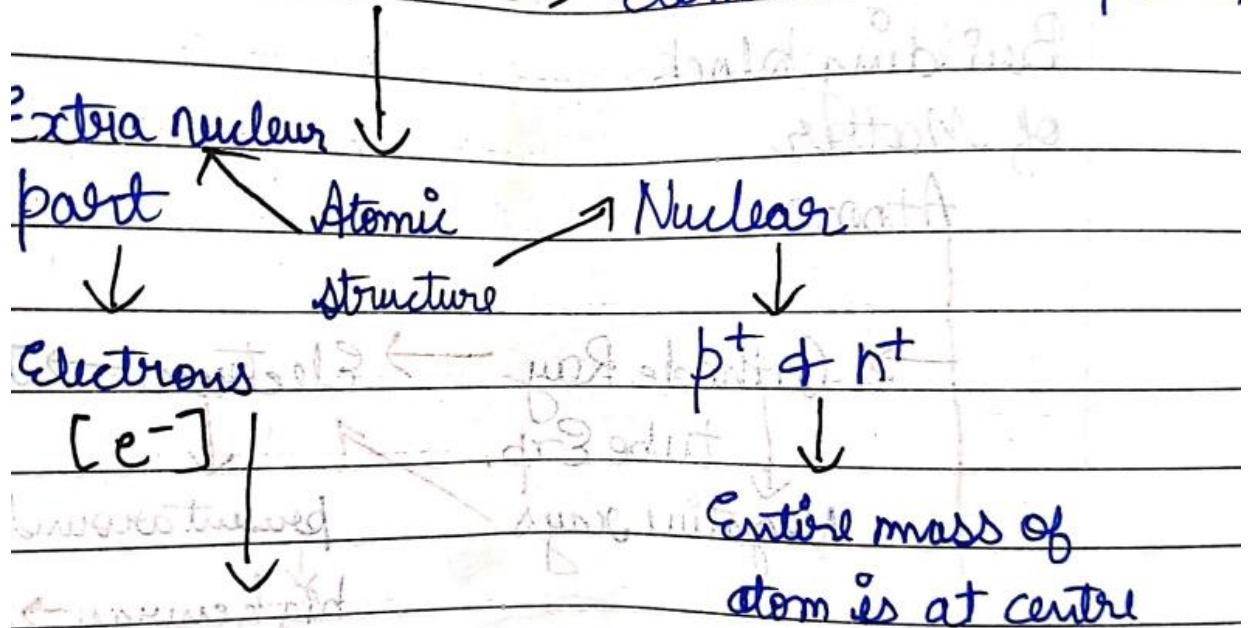 Extra nucleur
part
Atomic
structure
Nuclear
Electrons
[e⁻]
p⁺ & n⁺
Entire mass of
atom is at centre